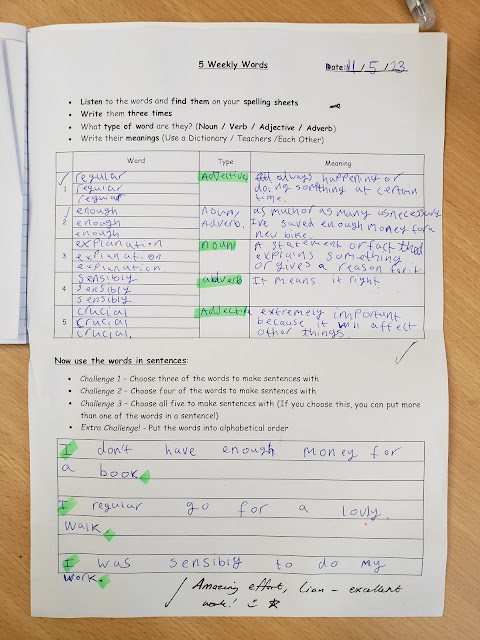 5 Weekly Words
Date: 11/5/23
Listen to the words and find them on your spelling sheets
Write them three times
What type of word are they? (Noun / Verb / Adjective / Adverb)
Write their meanings (Use a Dictionary / Teachers /Each Other)
Word Type Meaning
1 regular Adjective always happening or
regular doing somthing at certain
regular time.
2 enough noun/ as much or as many as necessary
enough Adverb. I've saved enough money for a
enough new bike.
3 explanation noun A statement or fact that
explanation explains something
explanation or gives a reason for it.
4 sensibly adverb It means it right
sensibly
sensibly
5 crucial Adjective extremely important
crucial because it will affect
crucial. other things.
Now use the words in sentences:
Challenge 1 - Choose three of the words to make sentences with
Challenge 2 - Choose four of the words to make sentences with
Challenge 3 - Choose all five to make sentences with (If you choose this, you can put more
than one of the words in a sentence!)
Extra Challenge! - Put the words into alphabetical order
I don't have enough money for
a book.
I regular go for a lovly
walk.
I was sensibly to do my
work.
Amazing effort, Lian - excellent
work!